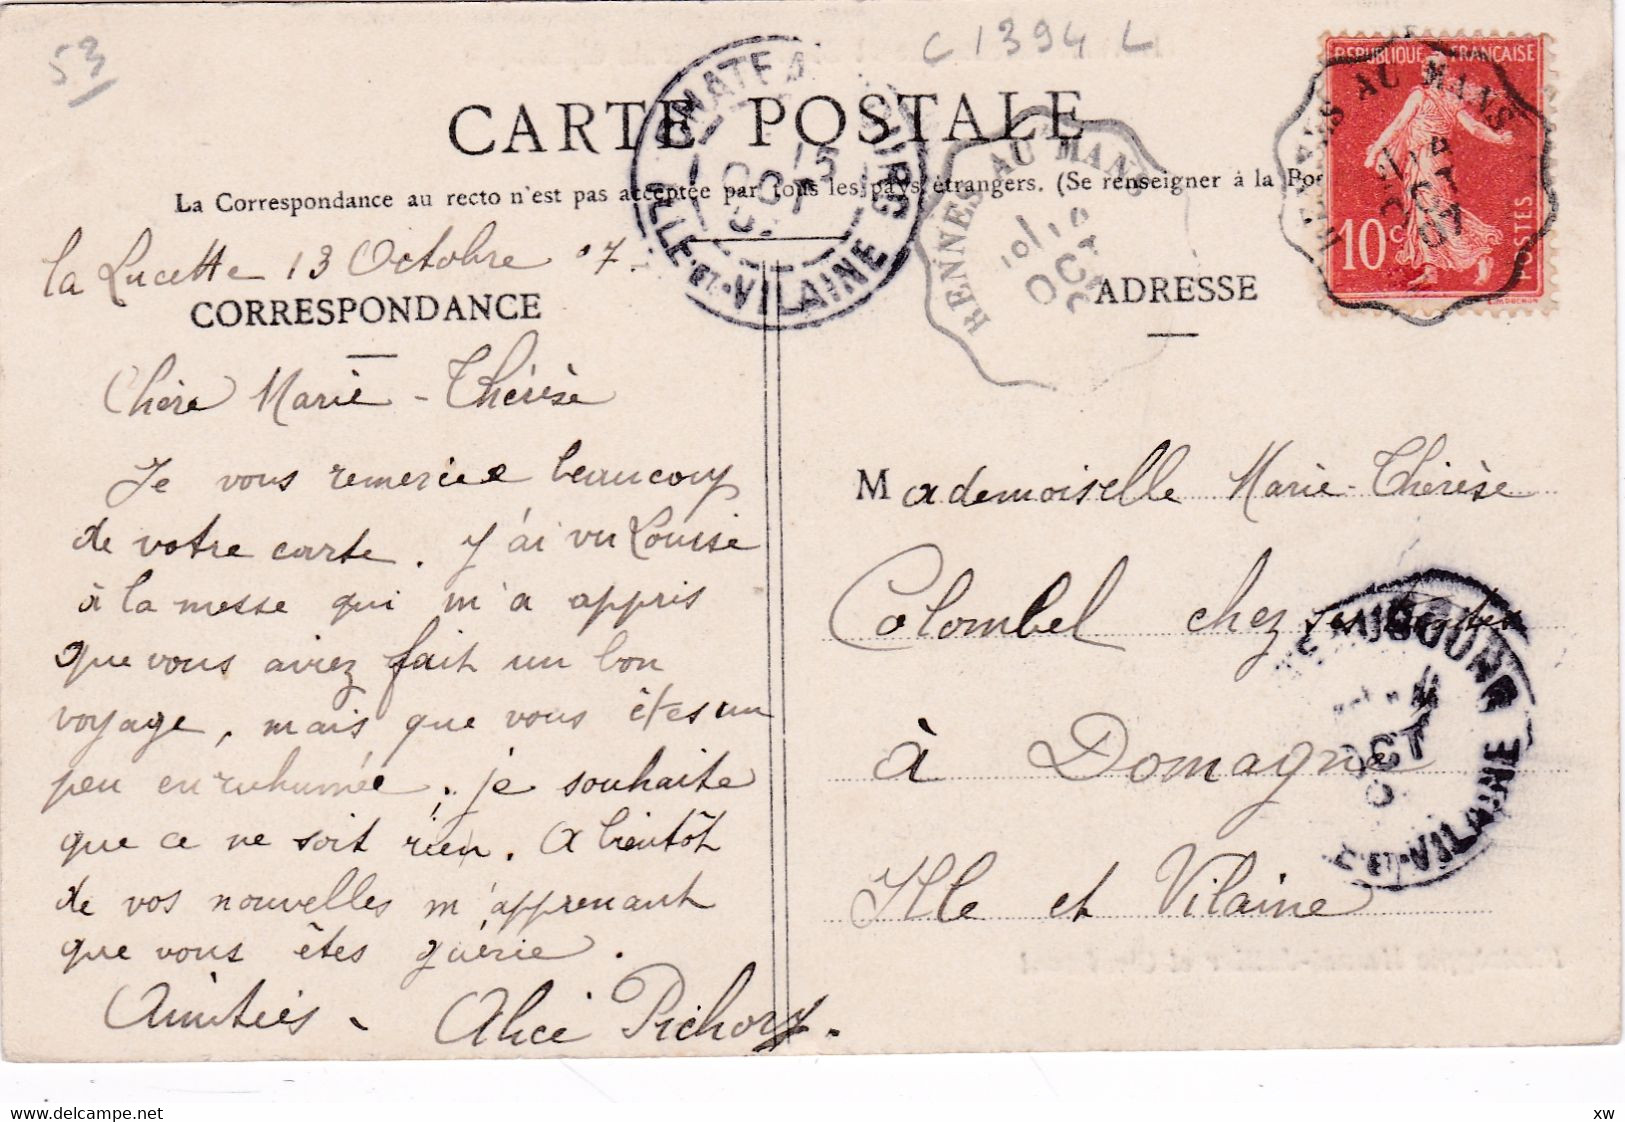 53
C 1394 L
CARTE POSTALE
La Correspondance au recto n'est pas acceptée par tous les pays étrangers. (Se renseigner à la Pos
la Lucette 13 Octobre 07.
CORRESPONDANCE
Chère Marie-Thérèse
Je vous remercie beaucoup
de votre carte. J'ai vu Louise
à la messe qui m'a appris
que vous aviez fait un bon
voyage, mais que vous êtes un
peu enruhumée, je souhaite
que ce ne soit rien. A bientôt
de vos nouvelles m'apprenant
que vous êtes guérie.
Amitiés - Alice Pichory.
ADRESSE
Mademoiselle Marie-Thérèse
Colombel chez ses
à Domagné
Ille et Vilaine
REPUBLIQUE FRANÇAISE
10c
POSTES
RENNES AU MANS
OCT
07
RENNES AU MANS
OCT
CHATEAUGIRON
15
OCT
ILLE-ET-VILAINE
OCT
ET-VILAINE
www.delcampe.net
xw